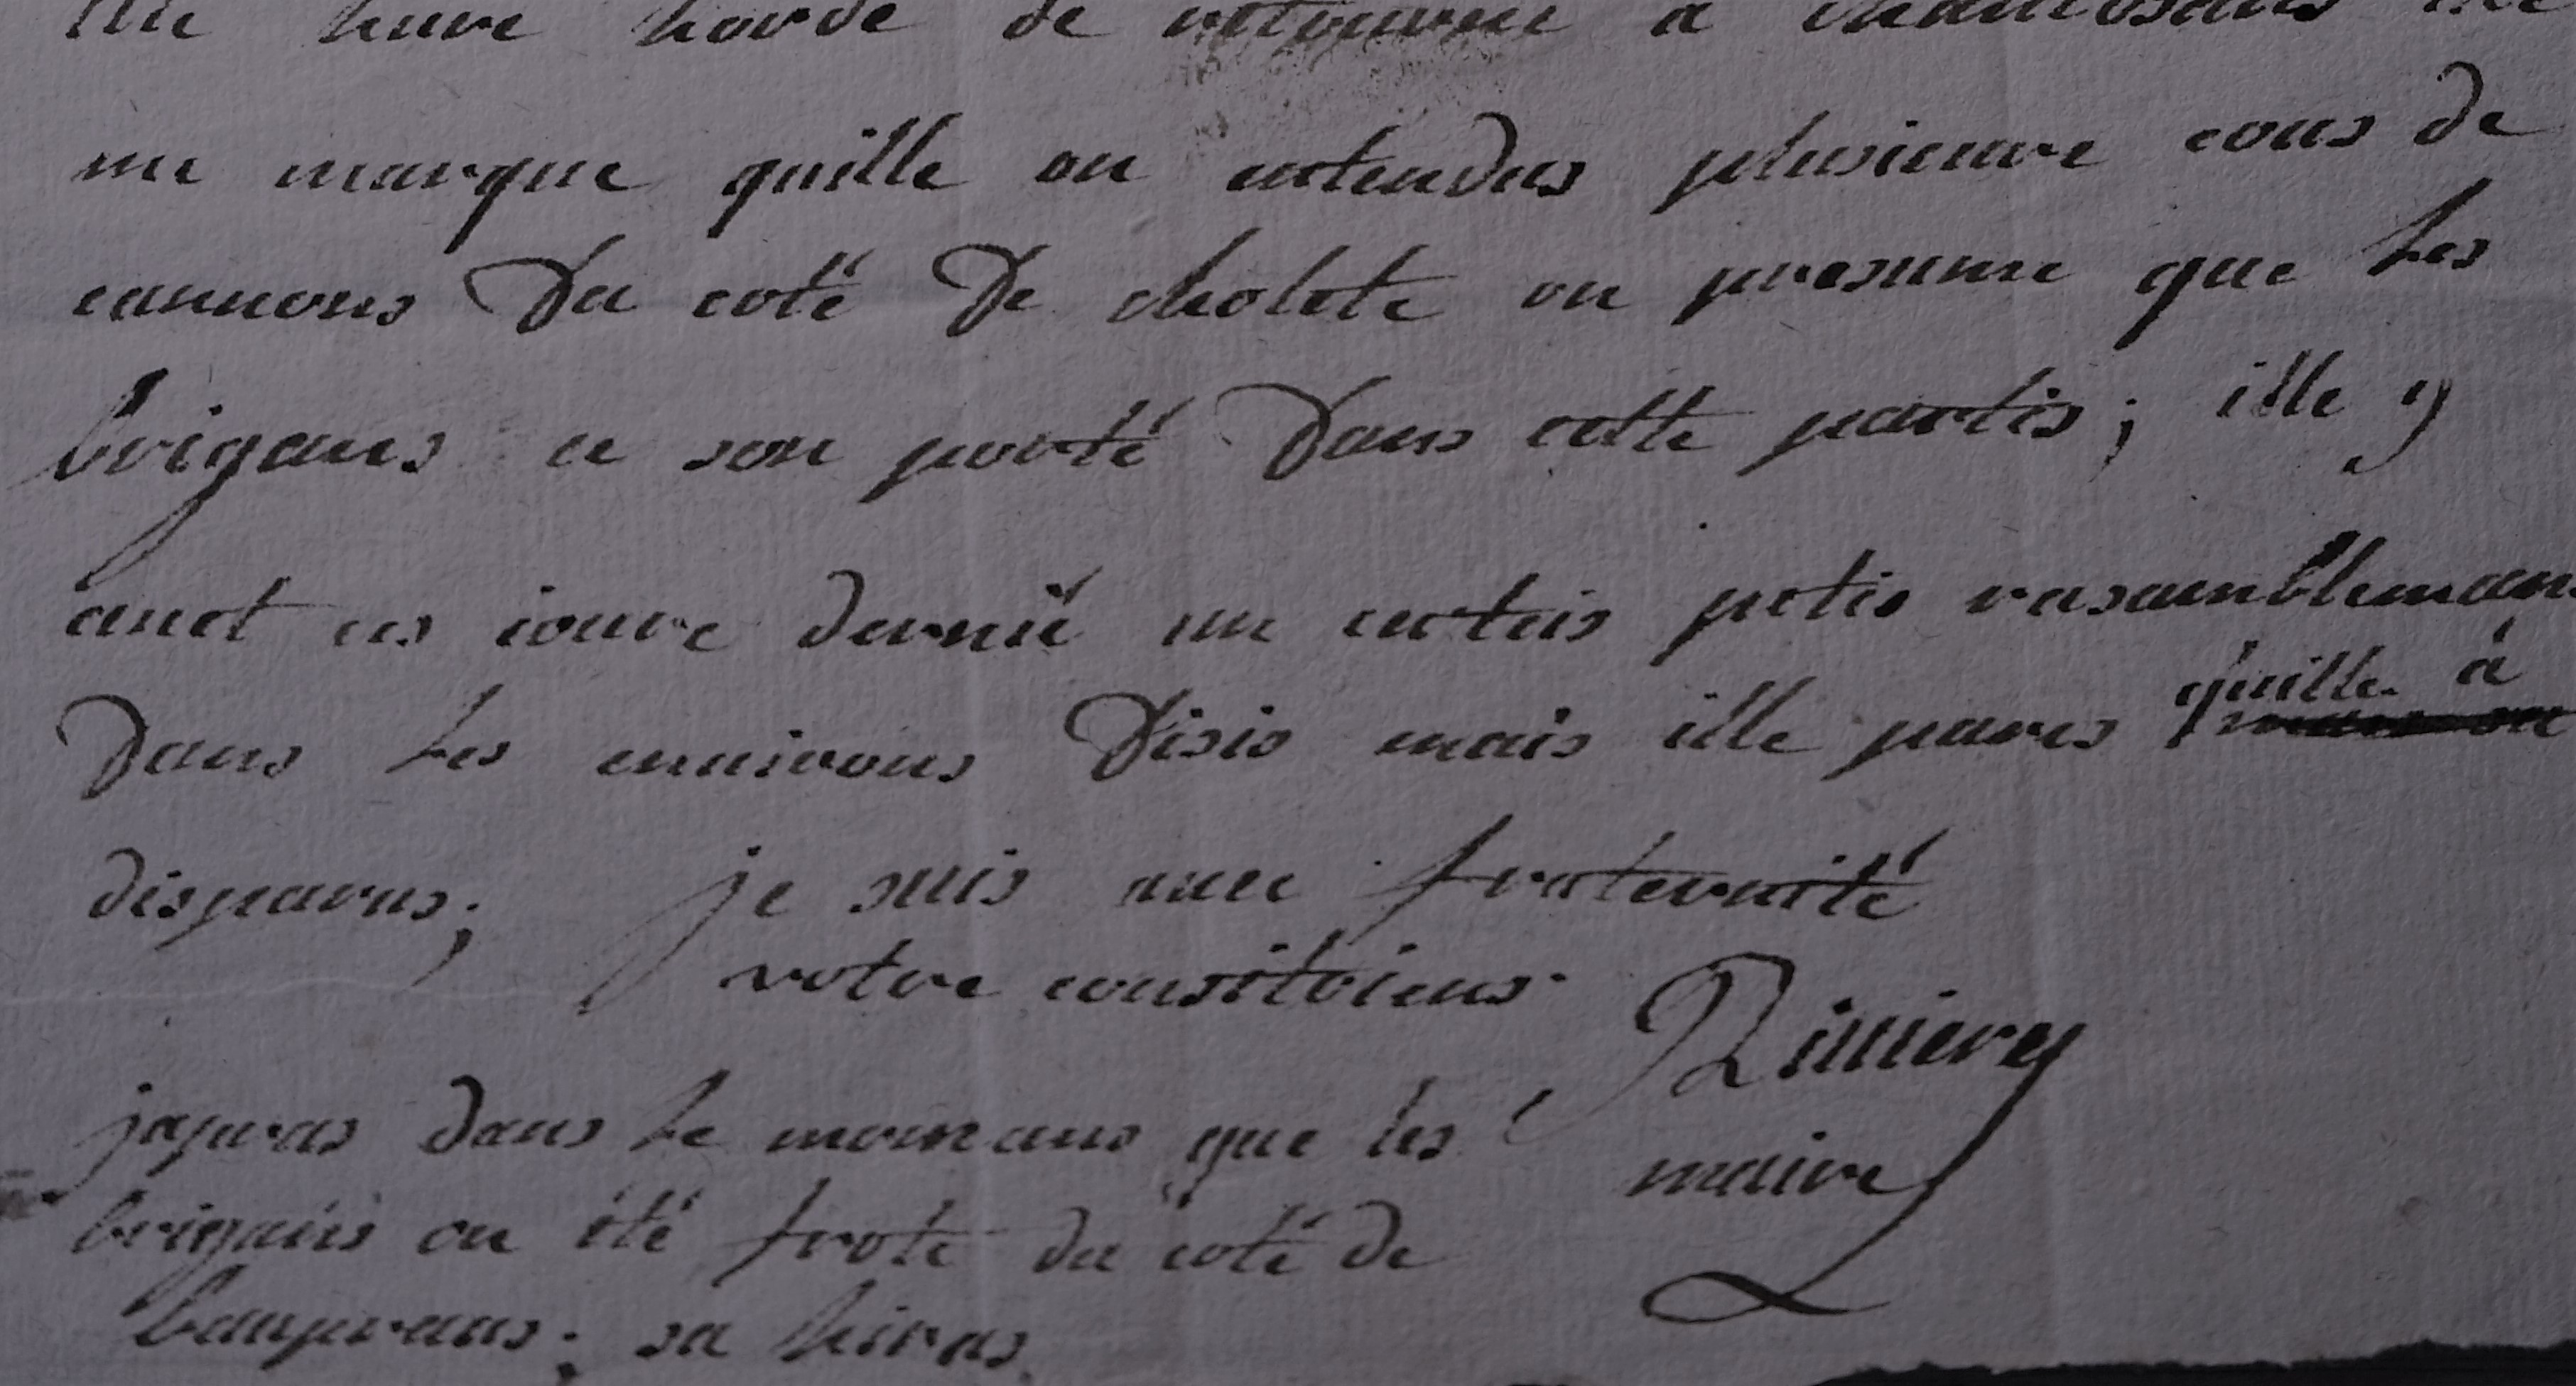 ille lieure horde de retourner a chantosaus ille
me marque quille on entendus plusieure cous de
cannons Du coté De cholete on presume que Les
brigans ce son porté Dans cette partis; ille y
auet ces ioure dernié un certeis petis rasamblemans
Dans Les anuirons Disis mais ille pares quille à
disparus; je suis auec fraternité
votre consitoiens
Riuierey
japras dans Le momans que les
maire
brigans on été froté du coté de
beaupraus; sa hiras